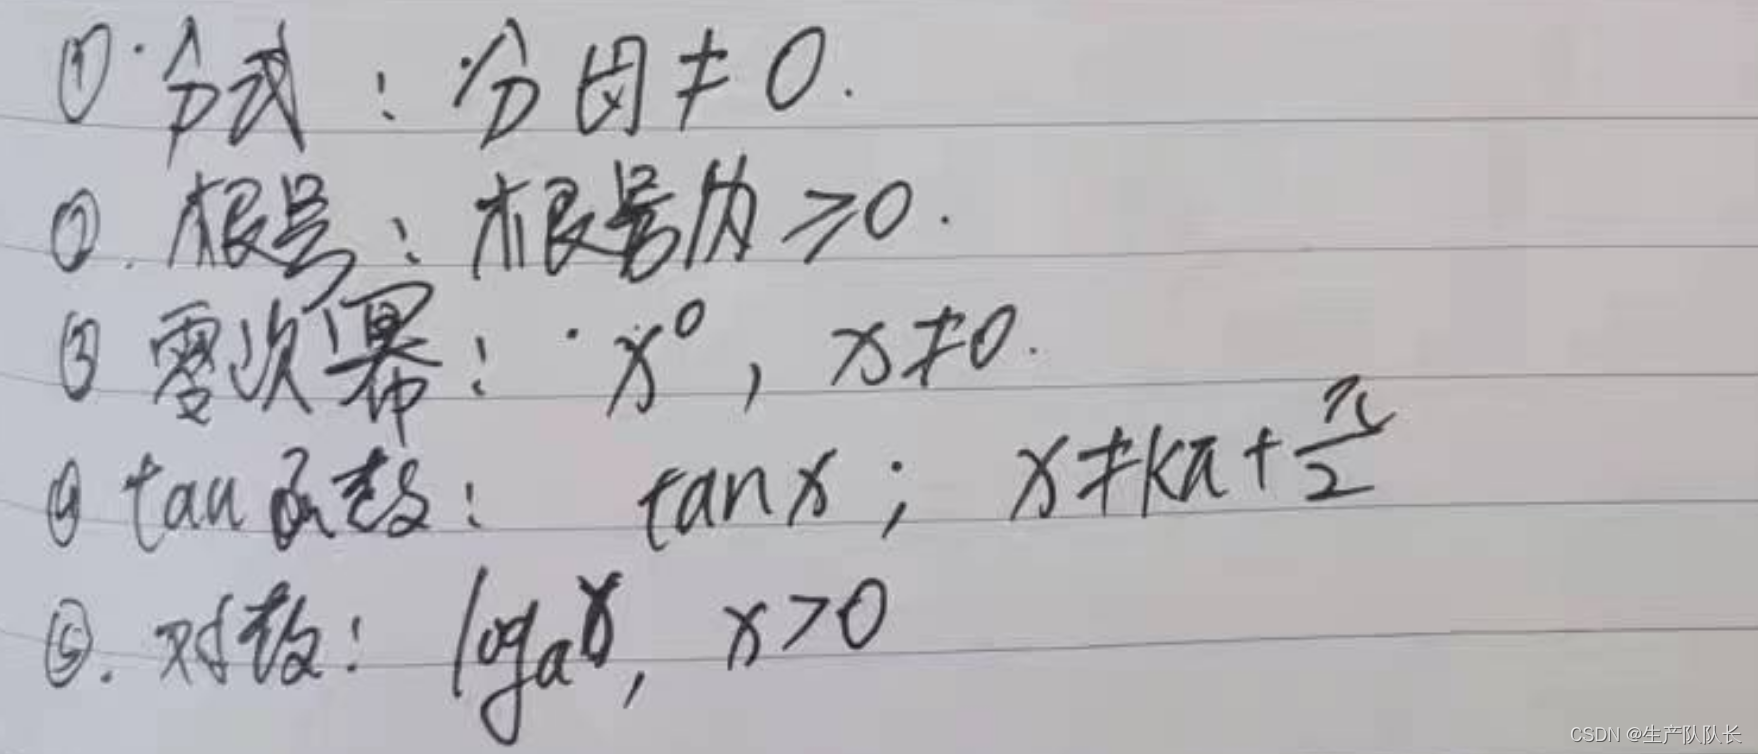 ① 分式：分母≠0.
②. 根号：根号内≥0.
③ 零次幂：x⁰, x≠0.
④ tan函数： tanx； x≠kπ+π/2
⑤. 对数：logₐx, x>0
CSDN @生产队队长